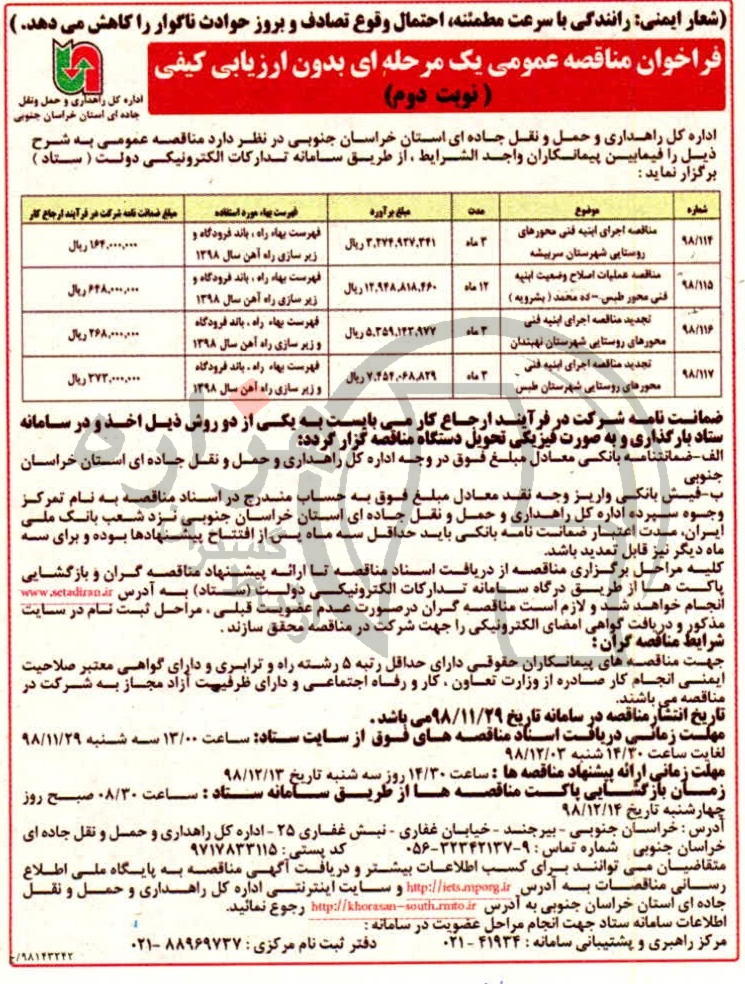 (شعار ایمنی: رانندگی با سرعت مطمئنه، احتمال وقوع تصادف و بروز حوادث ناگوار را کاهش می دهد.)
فراخوان مناقصه عمومی یک مرحله ای بدون ارزیابی کیفی
(نوبت دوم)
اداره کل راهداری و حمل ونقل
جاده ای استان خراسان جنوبی
اداره کل راهداری و حمل و نقل جاده ای استان خراسان جنوبی در نظر دارد مناقصه عمومی به شرح
ذیل را فیمابین پیمانکاران واجد الشرایط ، از طریق سامانه تدارکات الکترونیکی دولت ( ستاد )
برگزار نماید :
شماره موضوع مدت مبلغ برآورد فهرست بهاء مورد استفاده مبلغ ضمانت نامه شرکت در فرآیند ارجاع کار
۹۸/۱۱۴ مناقصه اجرای ابنیه فنی محورهای روستایی شهرستان سربیشه ۳ ماه ۳,۲۷۴,۹۳۷,۳۴۱ ریال فهرست بهاء راه ، باند فرودگاه و زیر سازی راه آهن سال ۱۳۹۸ ۱۶۴,۰۰۰,۰۰۰ ریال
۹۸/۱۱۵ مناقصه عملیات اصلاح وضعیت ابنیه فنی محور طبس -ده محمد ( بشرویه ) ۱۲ ماه ۱۲,۹۴۸,۸۱۸,۴۶۰ ریال فهرست بهاء راه ، باند فرودگاه و زیر سازی راه آهن سال ۱۳۹۸ ۶۴۸,۰۰۰,۰۰۰ ریال
۹۸/۱۱۶ تجدید مناقصه اجرای ابنیه فنی محورهای روستایی شهرستان نهبندان ۳ ماه ۵,۳۵۹,۱۴۳,۹۷۷ ریال فهرست بهاء راه ، باند فرودگاه و زیر سازی راه آهن سال ۱۳۹۸ ۲۶۸,۰۰۰,۰۰۰ ریال
۹۸/۱۱۷ تجدید مناقصه اجرای ابنیه فنی محورهای روستایی شهرستان طبس ۳ ماه ۷,۴۵۴,۰۶۸,۸۲۹ ریال فهرست بهاء راه ، باند فرودگاه و زیر سازی راه آهن سال ۱۳۹۸ ۳۷۳,۰۰۰,۰۰۰ ریال
ضمانت نامه شرکت در فرآیند ارجاع کار می بایست به یکی از دو روش ذیل اخذ و در سامانه
ستاد بارگذاری و به صورت فیزیکی تحویل دستگاه مناقصه گزار گردد:
الف-ضمانتنامه بانکی معادل مبلغ فوق در وجه اداره کل راهداری و حمل و نقل جاده ای استان خراسان
جنوبی
ب-فیش بانکی واریز وجه نقد معادل مبلغ فوق به حساب مندرج در اسناد مناقصه به نام تمرکز
وجوه سپرده اداره کل راهداری و حمل و نقل جاده ای استان خراسان جنوبی نزد شعب بانک ملی
ایران، مدت اعتبار ضمانت نامه بانکی باید حداقل سه ماه پس از افتتاح پیشنهادها بوده و برای سه
ماه دیگر نیز قابل تمدید باشد.
کلیه مراحل برگزاری مناقصه از دریافت اسناد مناقصه تا ارائه پیشنهاد مناقصه گران و بازگشایی
پاکت ها از طریق درگاه سامانه تدارکات الکترونیکی دولت (ستاد) به آدرس www.setadiran.ir
انجام خواهد شد و لازم است مناقصه گران درصورت عدم عضویت قبلی ، مراحل ثبت نام در سایت
مذکور و دریافت گواهی امضای الکترونیکی را جهت شرکت در مناقصه محقق سازند .
شرایط مناقصه گران :
جهت مناقصه های پیمانکاران حقوقی دارای حداقل رتبه ۵ رشته راه و ترابری و دارای گواهی معتبر صلاحیت
ایمنی انجام کار صادره از وزارت تعاون ، کار و رفاه اجتماعی و دارای ظرفیهت آزاد مجاز به شرکت در
مناقصه می باشند.
تاریخ انتشار مناقصه در سامانه تاریخ ۹۸/۱۱/۲۹ می باشد .
مهلت زمانی دریافت اسناد مناقصه های فوق از سایت ستاد: ساعت ۱۳/۰۰ سه شنبه ۹۸/۱۱/۲۹
لغایت ساعت ۱۴/۳۰ شنبه ۹۸/۱۲/۰۳
مهلت زمانی ارائه پیشنهاد مناقصه ها : ساعت ۱۴/۳۰ روز سه شنبه تاریخ ۹۸/۱۲/۱۳
زمان بازگشایی پاکت مناقصه ها از طریق سامانه ستاد : ساعت ۰۸/۳۰ صبح روز
چهارشنبه تاریخ ۹۸/۱۲/۱۴
آدرس : خراسان جنوبی - بیرجند - خیابان غفاری - نبش غفاری ۲۵ - اداره کل راهداری و حمل و نقل جاده ای
خراسان جنوبی شماره تماس : ۹-۳۲۳۴۲۱۳۷-۰۵۶ کد پستی : ۹۷۱۷۸۳۳۱۱۵
متقاضیان می توانند برای کسب اطلاعات بیشتر و دریافت آگهی مناقصه به پایگاه ملی اطلاع
رسانی مناقصات به آدرس http://iets.mporg.ir و سایت اینترنتی اداره کل راهداری و حمل و نقل
جاده ای استان خراسان جنوبی به آدرس http://khorasan-south.rmto.ir رجوع نمائید.
اطلاعات سامانه ستاد جهت انجام مراحل عضویت در سامانه :
مرکز راهبری و پشتیبانی سامانه : ۴۱۹۳۴ - ۰۲۱ دفتر ثبت نام مرکزی : ۸۸۹۶۹۷۳۷ -۰۲۱
۹۸۱۴۳۲۴۲/خ